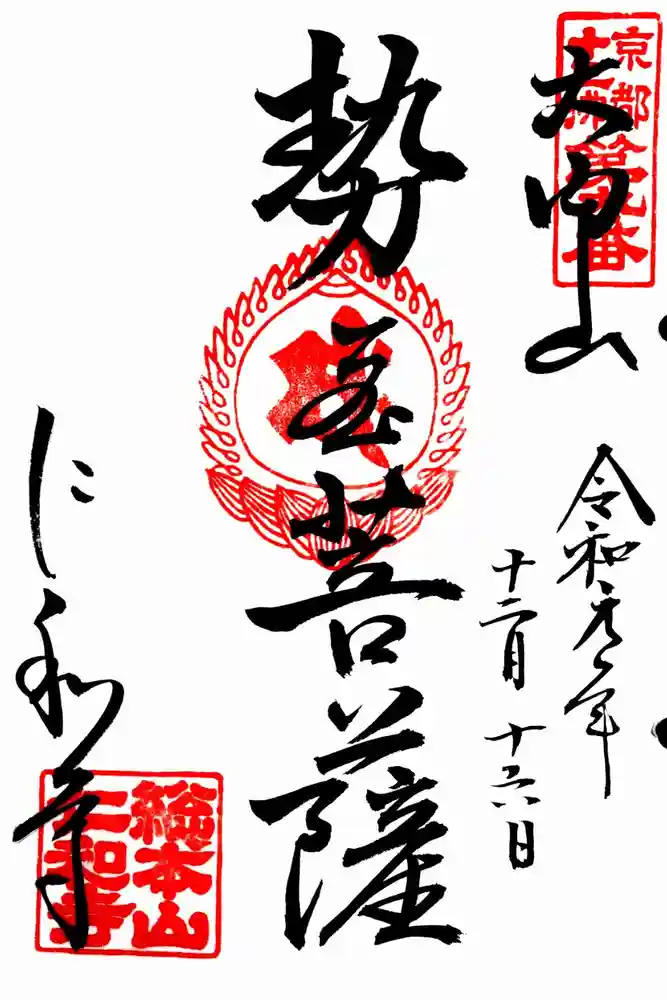 京都
十三佛第九番
大内山
令和元年
十二月十六日
勢至菩薩
仁和寺
総本山
仁和寺